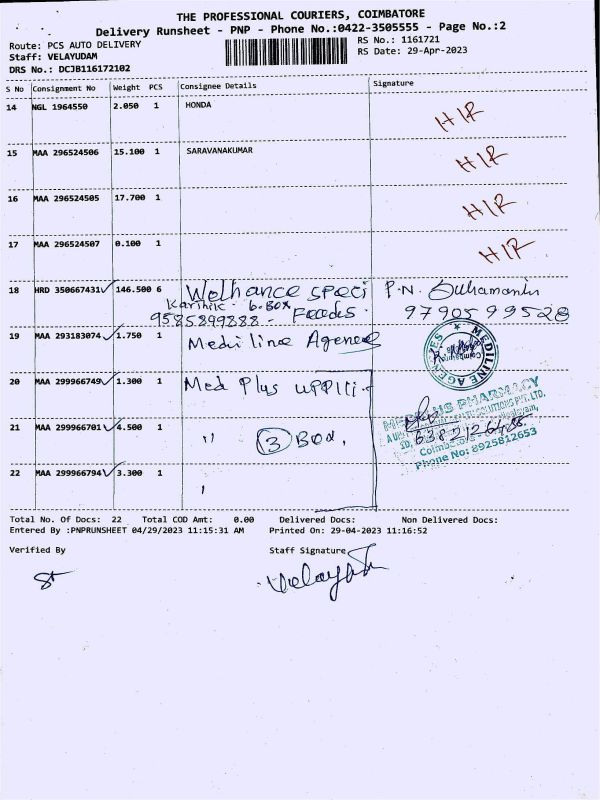 THE PROFESSIONAL COURIERS, COIMBATORE
Delivery Runsheet - PNP - Phone No.:0422-3505555 - Page No.:2
Route: PCS AUTO DELIVERY RS No.: 1161721
Staff: VELAYUDAM RS Date: 29-Apr-2023
DRS No.: DCJB116172102
S No Consignment No Weight PCS Consignee Details Signature
14 NGL 1964550 2.050 1 HONDA HIR
15 MAA 296524506 15.100 1 SARAVANAKUMAR HIR
16 MAA 296524505 17.700 1 HIR
17 MAA 296524507 0.100 1 HIR
18 HRD 350667431 146.500 6 Welhance speci P.N.
Karthik - 6. Box Feeds. 9790599528
9585899888 -
19 MAA 293183074 1.750 1 Mediline Agences
MEDILINE AGENCIES
20 MAA 299966749 1.300 1 Med Plus
PHARMACY
21 MAA 299966701 4.500 1 " 3 Box. 6382126485
Phone No: 8925812653
22 MAA 299966794 3.300 1
Total No. Of Docs: 22 Total COD Amt: 0.00 Delivered Docs: Non Delivered Docs:
Entered By :PNPRUNSHEET 04/29/2023 11:15:31 AM Printed On: 29-04-2023 11:16:52
Verified By Staff Signature